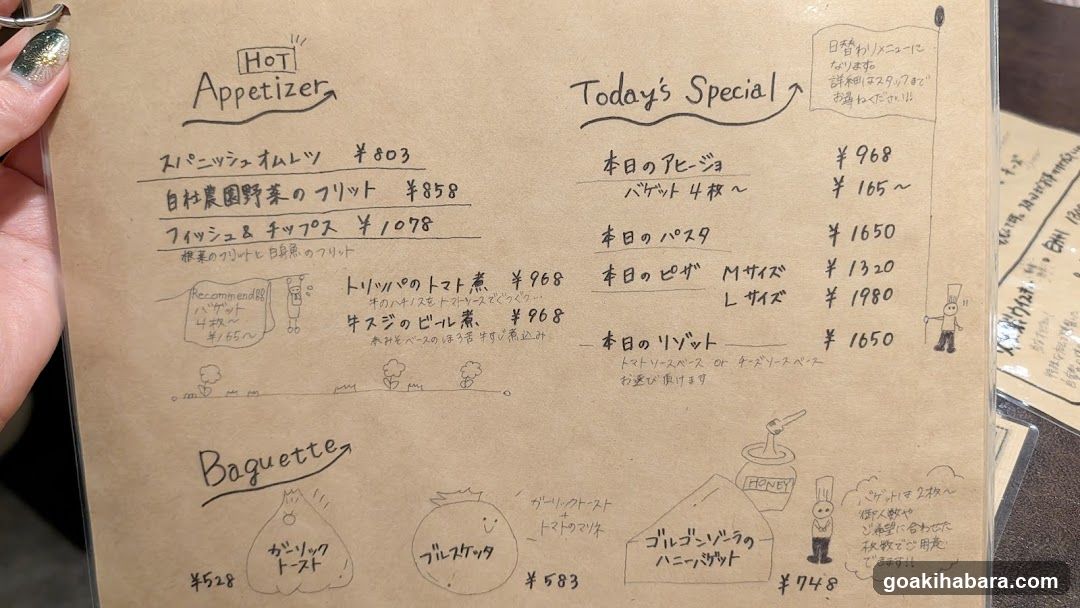 HOT
Appetizer
スパニッシュオムレツ ¥803
自社農園野菜のフリット ¥858
フィッシュ& チップス ¥1078
根菜のフリットと白身魚のフリット
Recommend!!
バゲット
4枚〜
¥165〜
トリッパのトマト煮 ¥968
牛のハチノスをトマトソースでぐつぐつ…
牛スジのビール煮 ¥968
赤みそベースのほろ苦牛すじ煮込み
Today's Special
日替わりメニューに
なります。
詳細はスタッフまで
お尋ねください!!
本日のアヒージョ ¥968
バゲット4枚〜 ¥165〜
本日のパスタ ¥1650
本日のピザ Mサイズ ¥1320
Lサイズ ¥1980
本日のリゾット ¥1650
トマトソースベース or チーズソースベース
お選び頂けます
Baguette
ガーリック
トースト
¥528
ブルスケッタ
ガーリックトースト
+
トマトのマリネ
¥583
HONEY
ゴルゴンゾーラの
ハニーバゲット
¥748
バゲットは2枚〜
御人数や
ご希望に合わせた
枚数でご用意
できます!!
goakihabara.com